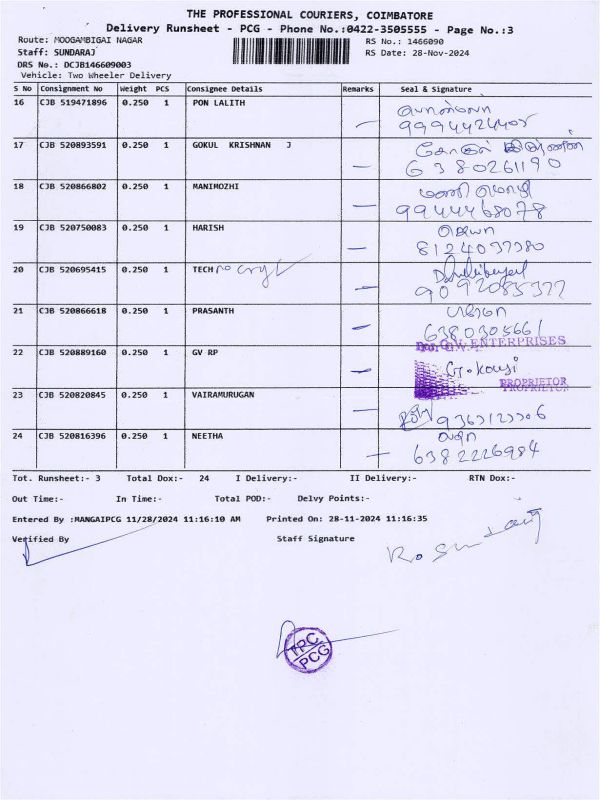 THE PROFESSIONAL COURIERS, COIMBATORE
Delivery Runsheet - PCG - Phone No.:0422-3505555 - Page No.:3
Route: MOOGAMBIGAI NAGAR RS No.: 1466090
Staff: SUNDARAJ RS Date: 28-Nov-2024
DRS No.: DCJB146609003
Vehicle: Two Wheeler Delivery
S No Consignment No Weight PCS Consignee Details Remarks Seal & Signature
16 CJB 519471896 0.250 1 PON LALITH
17 CJB 520893591 0.250 1 GOKUL KRISHNAN J
6380261190
18 CJB 520866802 0.250 1 MANIMOZHI மணிமொழி
9944468078
19 CJB 520750083 0.250 1 HARISH
8124037380
20 CJB 520695415 0.250 1 TECH
9092085377
21 CJB 520866618 0.250 1 PRASANTH
6380305661
22 CJB 520889160 0.250 1 GV RP
G.V. ENTERPRISES
G.Kousi
PROPRIETOR
23 CJB 520820845 0.250 1 VAIRAMURUGAN
24 CJB 520816396 0.250 1 NEETHA
6382226984
Tot. Runsheet:- 3 Total Dox:- 24 I Delivery:- II Delivery:- RTN Dox:-
Out Time:- In Time:- Total POD:- Delvy Points:-
Entered By :MANGAIPCG 11/28/2024 11:16:10 AM Printed On: 28-11-2024 11:16:35
Verified By Staff Signature
TPC
PCG